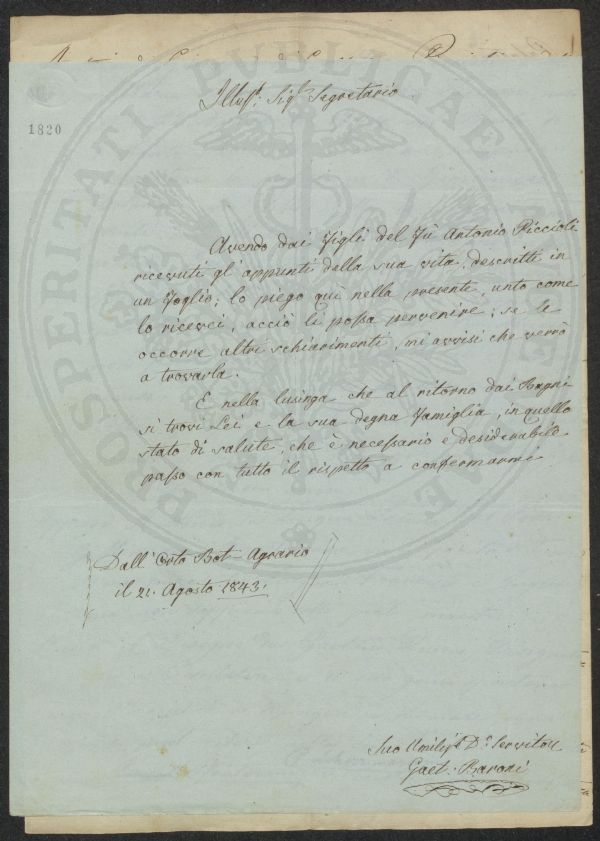 1820
PROSPERITATI PUBLICAE
Illuss. Sigr. Segretario
Avendo dai Figli del Fù Antonio Piccioli
ricevuti gl'appunti della sua vita, descritti in
un Foglio; lo piego quì nella presente, unto come
lo ricevei, acciò li possa pervenire; se le
occorre altri schiarimenti, mi avvisi che verrò
a trovarla.
E nella lusinga che al ritorno dai Bagni
si trovi Lei e la sua degna Famiglia, in quello
stato di salute, che è necessario e desiderabile
passo con tutto il rispetto a confermarmi
Dall'Orto Bot. Agrario
il 21. Agosto 1843.
Suo Umiliss. D. Servitore
Gaet. Baroni